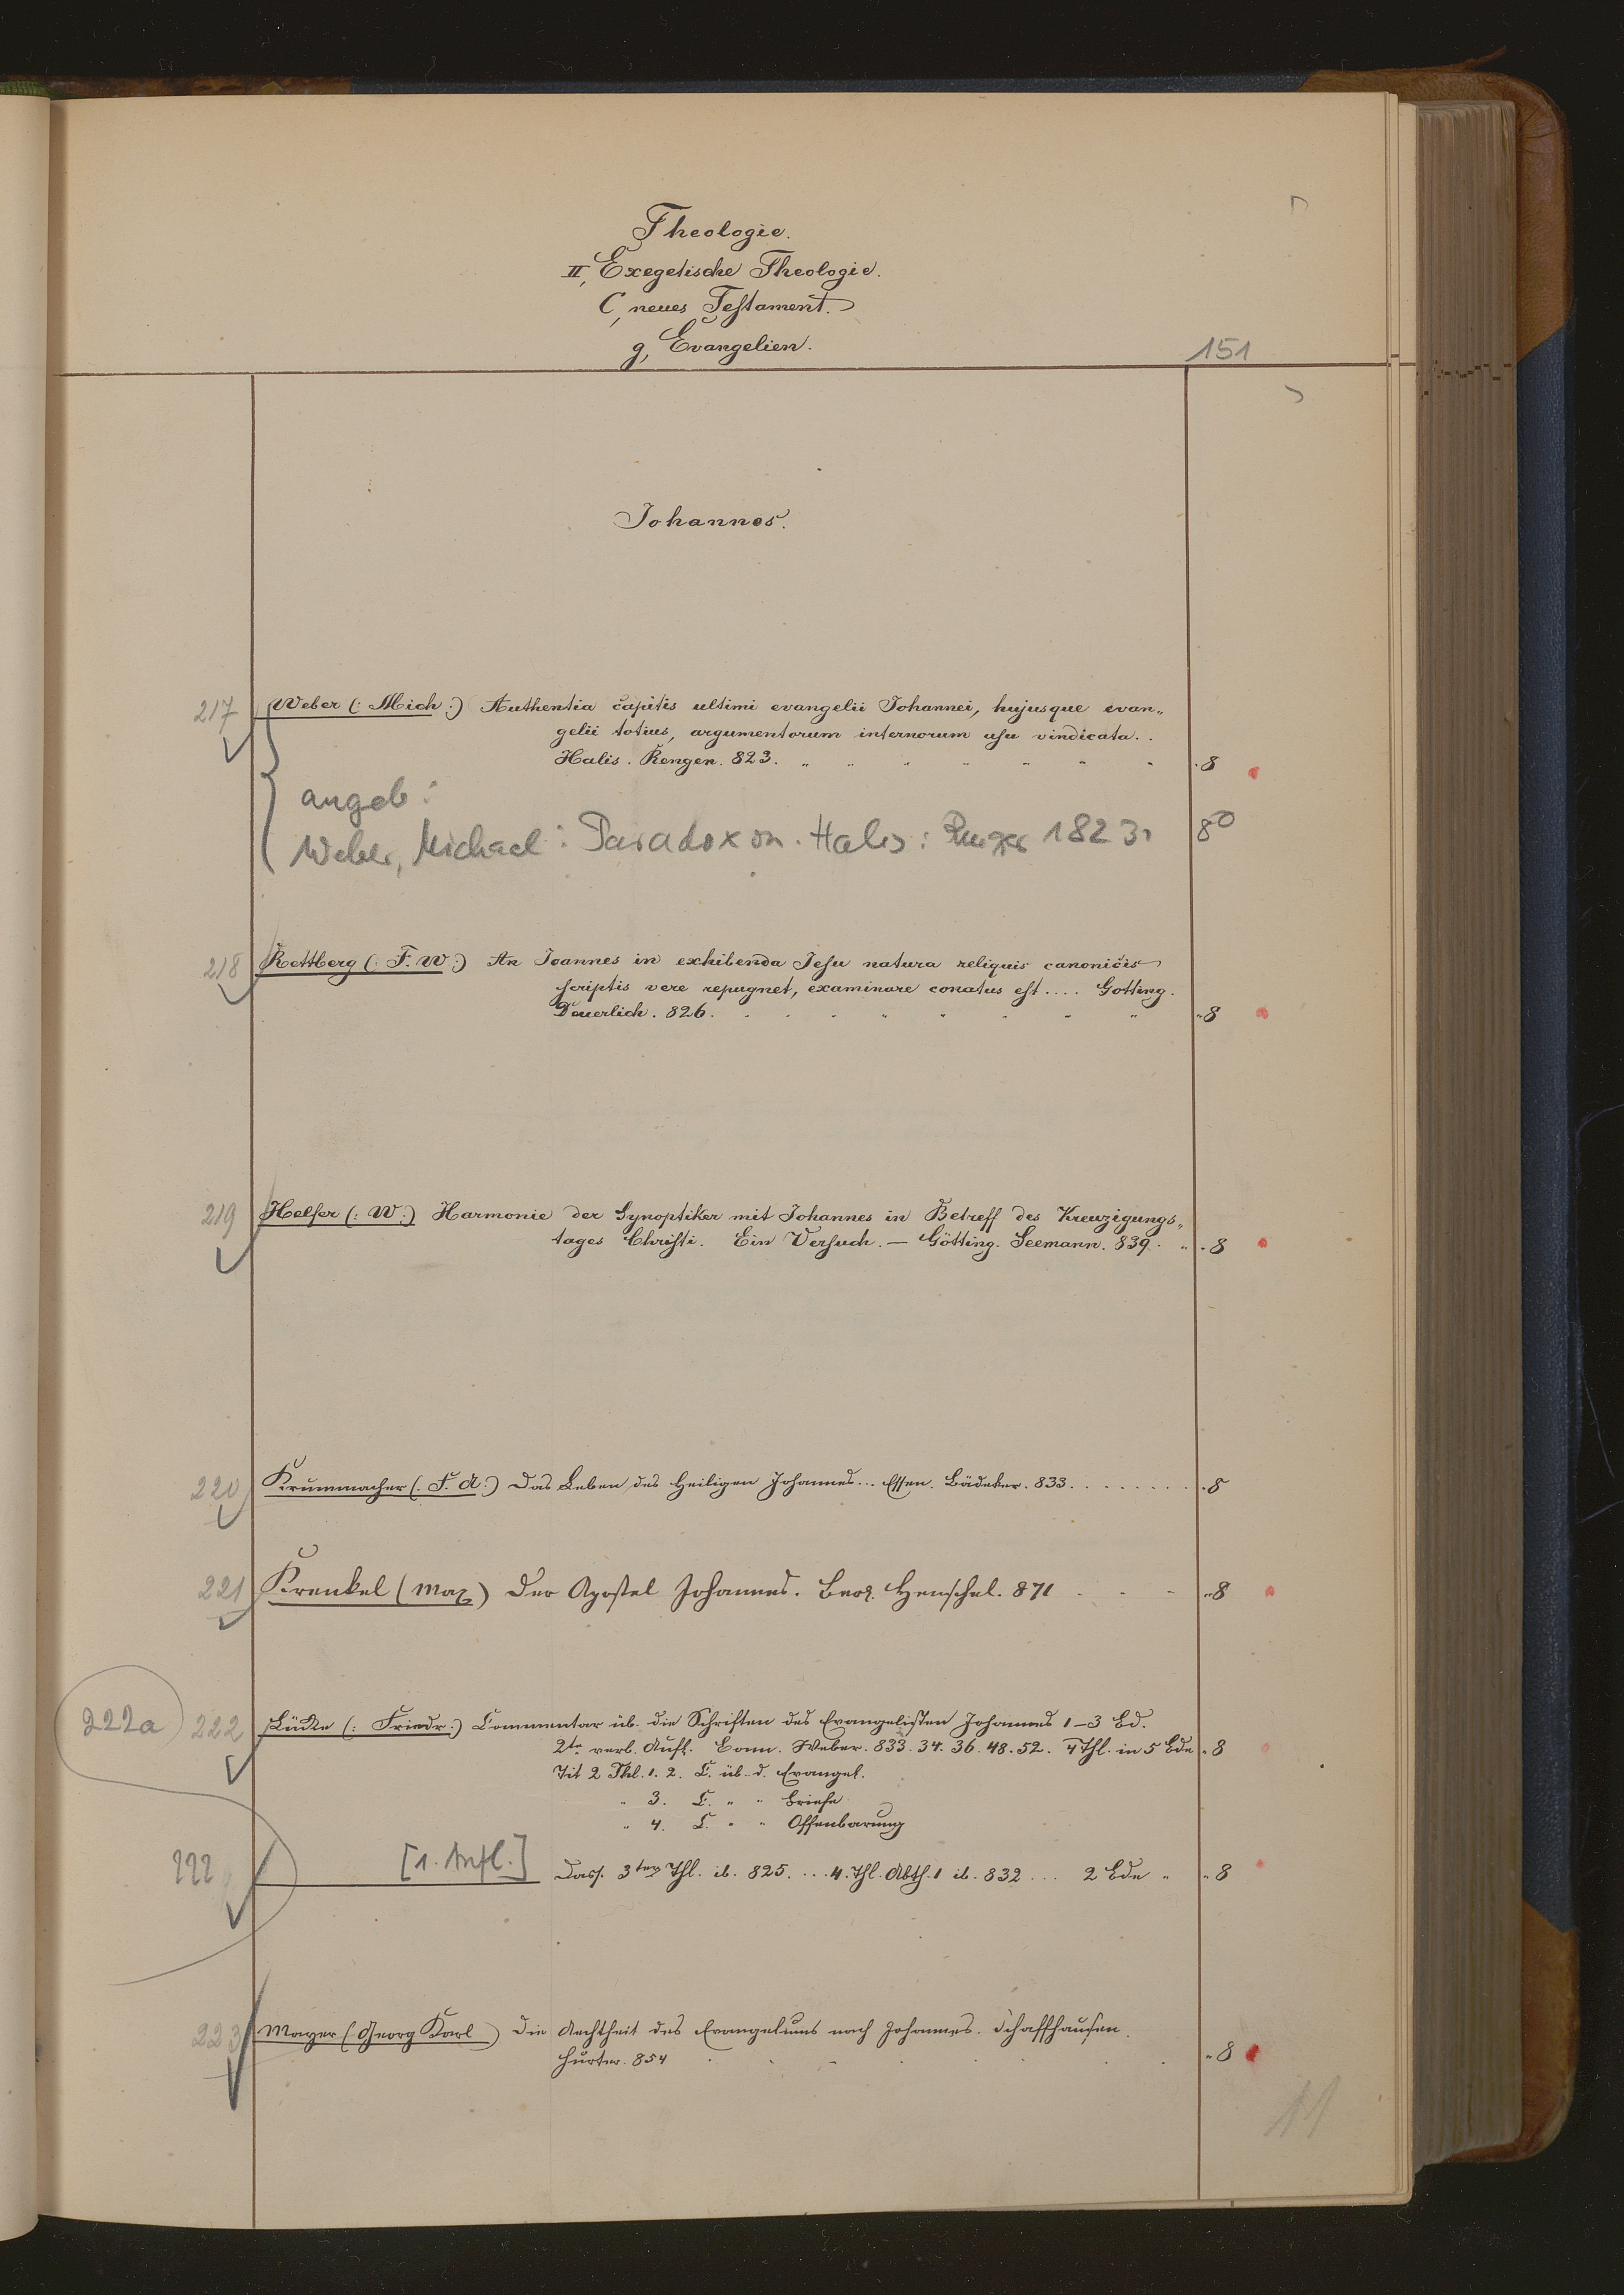 Theologie.
II, Exegetische Theologie.
C, neues Testament.
g, Evangelien.
151
Johannes.
217 Weber (: Mich :) Authentia capitis ultimi evangelii Johannei, hujusque evan„
gelii totius, argumentorum internorum usu vindicata..
Halis. Renger. 823. 8
angeb:
Weber, Michael: Paradoxon. Halis: Renger 1823. 8°
218 Rettberg (: F. W :) An Joannes in exhibenda Jesu natura reliquis canonicis
scriptis vere repugnet, examinare conatus est.... Gotting.
Deuerlich. 826. 8
219 Helfer (: W :) Harmonie der Synoptiker mit Johannes in Betreff des Kreuzigungs„
tages Christi. Ein Versuch. — Götting. Seemann. 839. 8
220 Krummacher (: F. A :) Das Leben des Heiligen Johannes... Essen. Bädeker. 833. 8
221 Krenkel (Max) Der Apostel Johannes. Berl. Henschel. 871 8
222a 222 Lücke (: Friedr :) Commentar üb. die Schriften des Evangelisten Johannes 1–3 Bd.
2te verb. Aufl. Bonn. Weber. 833. 34. 36. 48. 52. 4 Thl. in 5 Bde 8
Tit 2 Thl. 1. 2. C. üb. d. Evangel.
„ 3. C. „ „ Briefe
„ 4. C. „ „ Offenbarung
222 [1. Aufl.] Dass. 3ter Thl. ib. 825. ... 4. Thl. Abth. 1 ib. 832 ... 2 Bde „ 8
223 Mayer (Georg Karl) Die Aechtheit des Evangeliums nach Johannes. Schaffhausen.
Hurter. 854 8
11